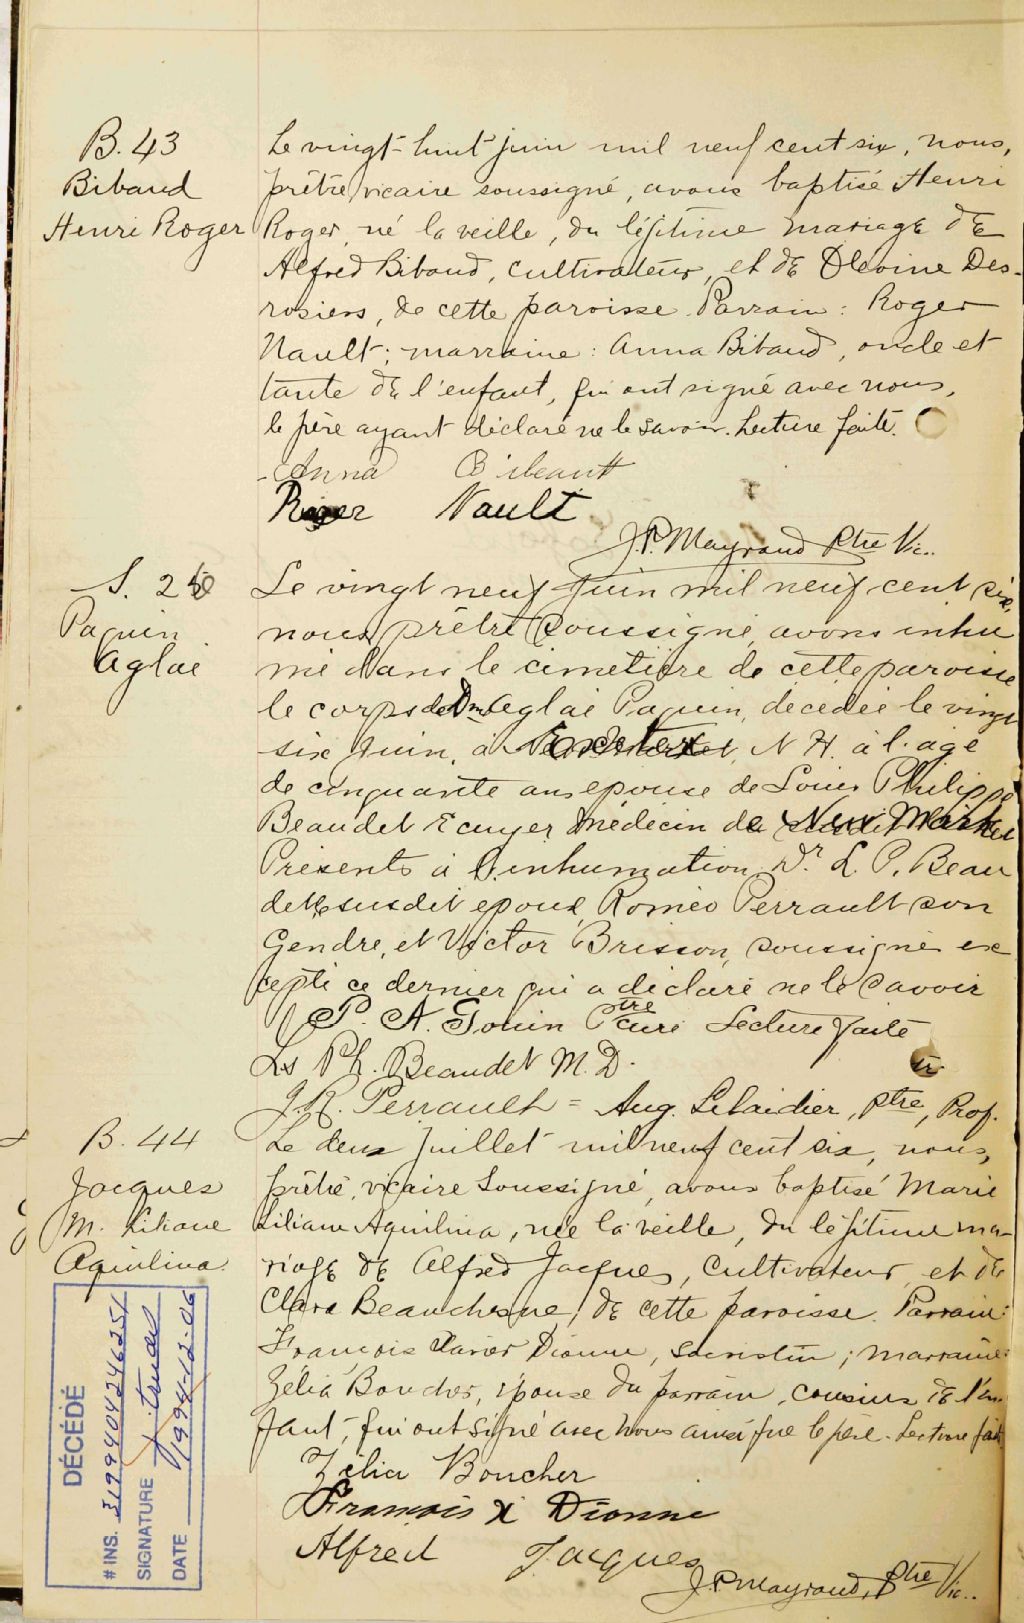 B. 43
Bibaud
Henri Roger
Le vingt-huit juin mil neuf cent six, nous,
prêtre vicaire soussigné, avons baptisé Henri
Roger, né la veille, du légitime mariage de
Alfred Bibaud, cultivateur, et de Olevine Des-
rosiers, de cette paroisse. Parrain: Roger
Nault; marraine: Anna Bibaud, oncle et
tante de l'enfant, qui ont signé avec nous,
le père ayant déclaré ne le savoir. Lecture faite.
Anna Bibeault
Roger Nault
J.P. Mayrand Ptre Vic..
S. 2
Paquin
Aglaé
Le vingt neuf Juin mil neuf cent six,
nous prêtre soussigné, avons inhu
mé dans le cimetière de cette paroisse
le corps de Dme Aglaé Paquin, décédée le vingt
six Juin, à Exeter N. H. à l'age
de cinquante ans epouse de Louis Philippe
Beaudet Ecuyer médecin de New Market
Présents à l'inhumation Dr. L. P. Beau
det susdit epoux, Roméo Perrault son
Gendre, et Victor Brisson, soussigné ex
cepté ce dernier qui a déclaré ne le savoir
P. A. Gouin Ptre curé Lecture faite
Ls Ph. Beaudet M. D.
J. R. Perrault = Aug. Lelaidier, ptre, Prof.
B. 44
Jacques
M. Liliane
Aquilina
Le deux Juillet mil neuf cent six, nous,
prêtre, vicaire soussigné, avons baptisé Marie
Liliane Aquilina, née la veille, du légitime ma-
riage de Alfred Jacques, cultivateur et de
Clara Beauchesne, de cette paroisse. Parrain:
François Xavier Dionne, sacristin; marraine:
Zélia Boucher, épouse du parrain, cousins de l'en
fant, qui ont signé avec nous ainsi que le père. Lecture faite
Zélia Boucher
François X Dionne
Alfred Jacques
J.P. Mayrand, Ptre Vic..
DÉCÉDÉ
# INS. 3199404246251
SIGNATURE
DATE 1994-12-06